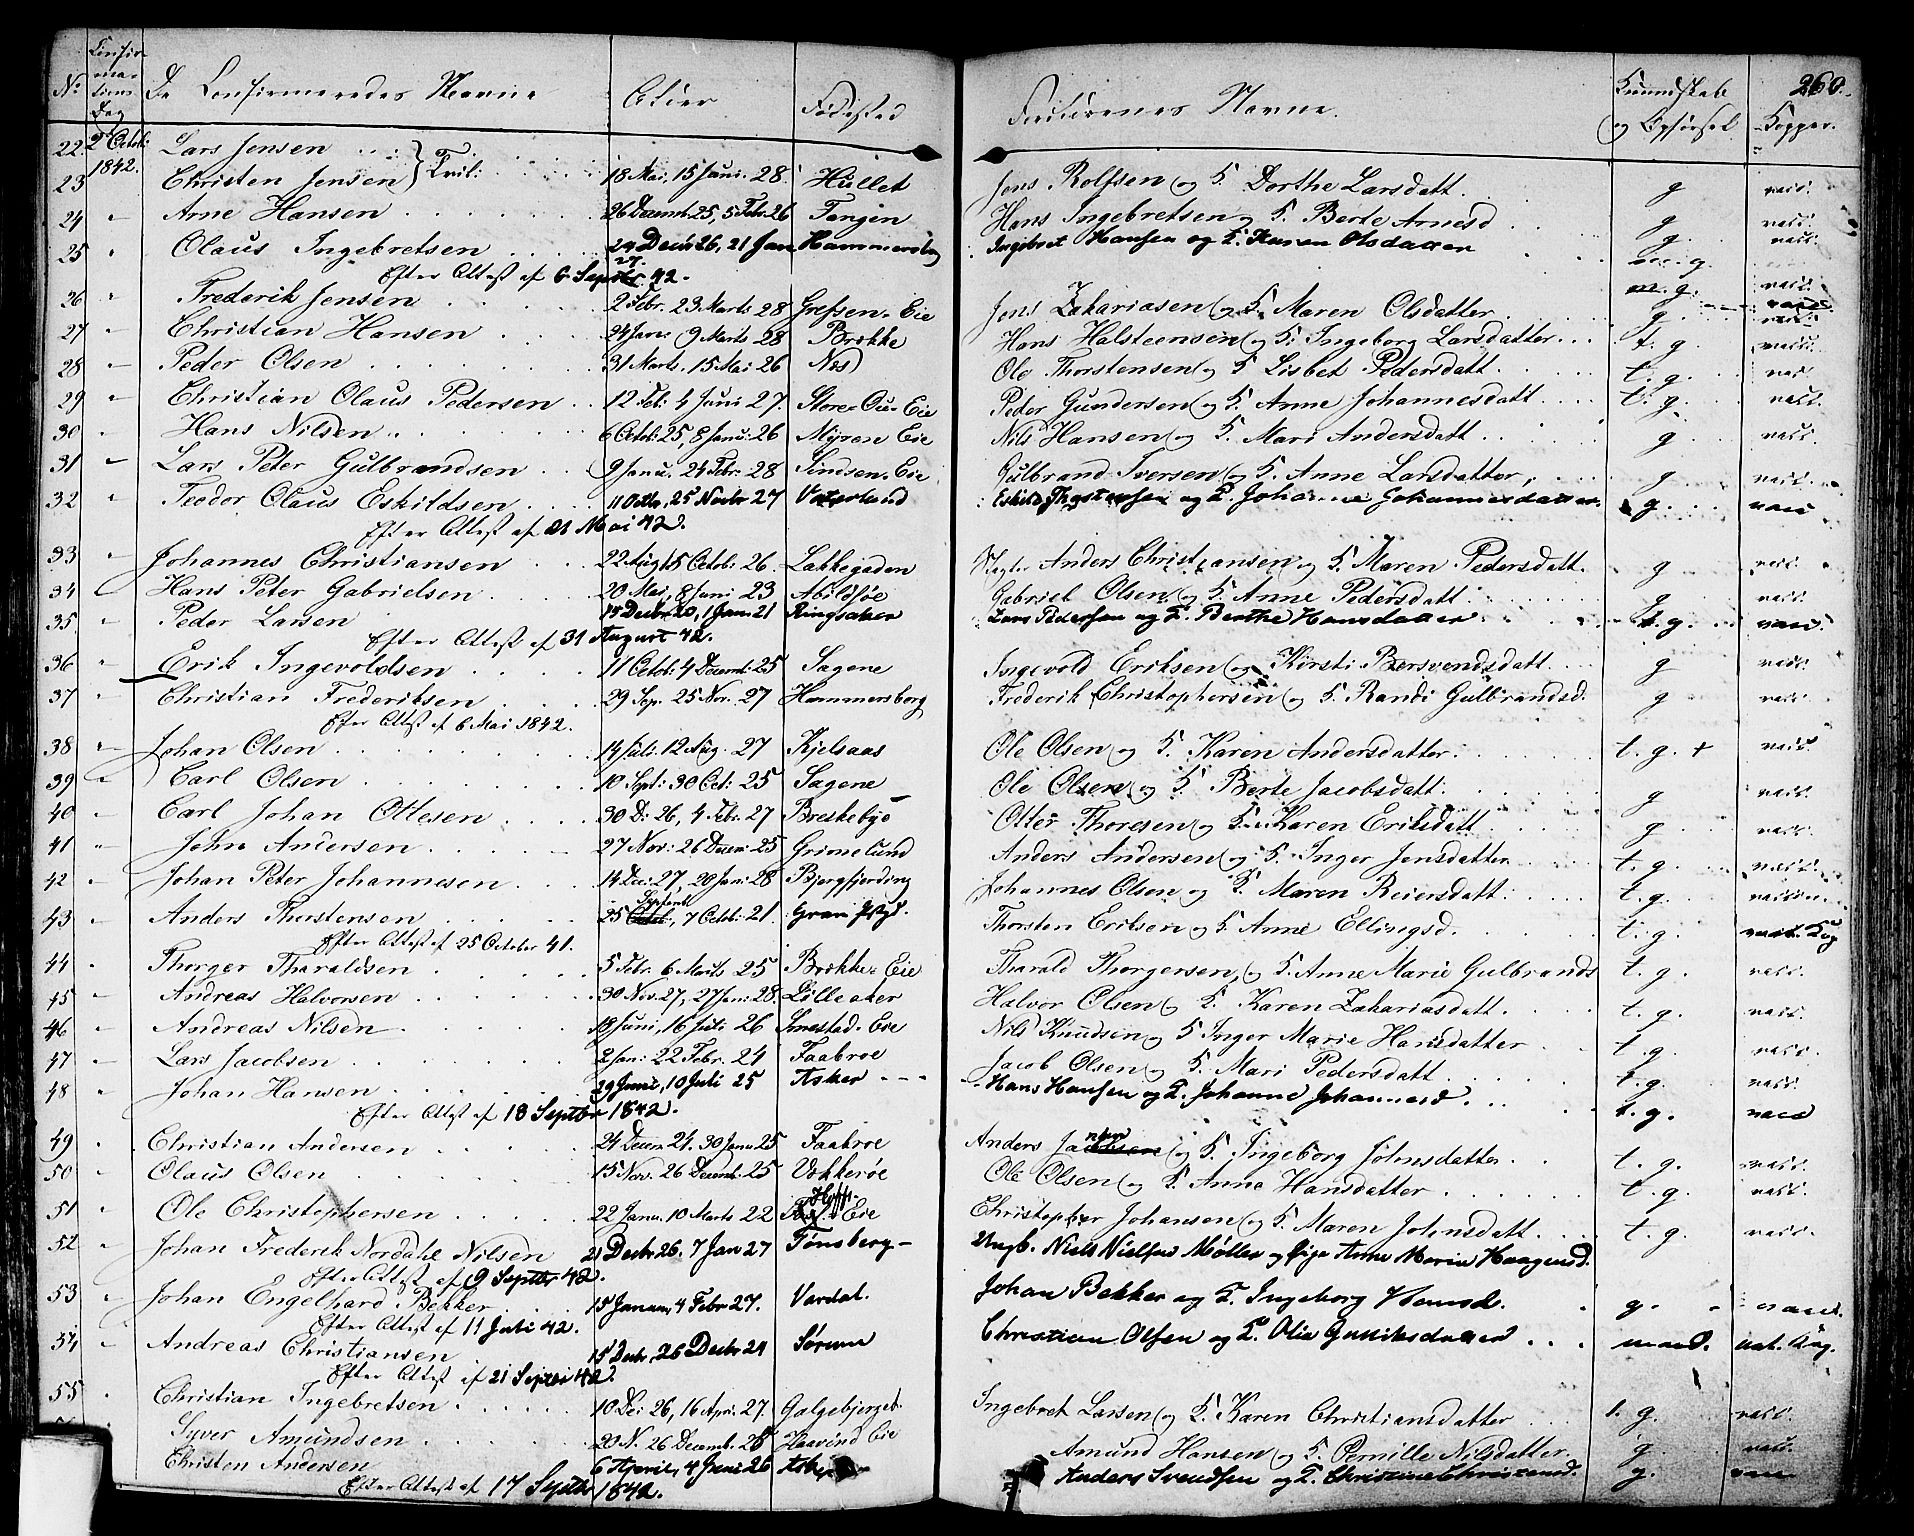 260.
No Confirmations Dag De Confirmeredes Navne Alder Fødested Forældrenes Navne. Kundskab og Opførsel Kopper.
22. 2 Octob: 1842. Lars Jensen } Tvil:
23 Christen Jensen 18 Mai, 15 Juni 28. Hullet Jens Rolfsen og H. Dorthe Larsdatt. g vacc.
24 " Arne Hansen 26 Decemb. 25, 5 Febr. 26 Tangen Hans Ingebretsen og H. Berte Arnesd g vacc.
25 " Olaus Ingebretsen 29 Decbr 26, 21 Jan 27. Hammersbg Ingebret Hansen og H. Karen Olsdatter g. vacc.
Efter Attest af 6 Septbr 42. m. g.
26 " Frederik Jensen 2 Febr. 23 Marts 28 Grefsen-Eie Jens Zakariasen og H. Maren Olsdatter m. g. vacc.
27 " Christian Hansen 24 Janu 9 Marts 28 Brekke Hans Halsteensen og H. Ingeborg Larsdatter t. g vacc.
28 " Peder Olsen 31 Marts. 15 Mai 26 Næs Ole Thorstensen og H Lisbet Pedersdatt t. g. vacc.
29 " Christian Olaus Pedersen 12 Feb: 4 Juni 27. Store-Ou-Eie Peder Gundersen og H. Anne Johannesdatt t. g. vacc.
30 " Hans Nilsen 6 Octob: 25, 8 Janu: 26 Myren Eie Nils Hansen og H. Mari Andersdatt g vacc.
31 " Lars Peter Gulbrandsen 9 Janu. 24 Febr. 28 Sindsen-Eie Gulbrand Iversen og H. Anne Larsdatter g. vacc.
32 " Teodor Olaus Eskildsen 11 Octbr, 25 Novbr 27 Vaterland Eskild Thostensen og H. Johanne Johannesdatter g. vacc
Efter Attest af 21 Mai 42.
33 " Johannes Christiansen 22 Aug. 15 Octob: 26. Lakkegaden Anders Christiansen og H. Maren Pedersdatt. g vacc.
34 " Hans Peter Gabrielsen 20 Mai, 8 Juni 23 Abildsøe Gabriel Olsen og H. Anne Pedersdatt g vacc.
35. " Peder Larsen 15 Decbr 20, 1 Jan: 21 Ringsaker Lars Pedersen og H. Berthe Hansdatter t. g. vacc.
Efter Attest af 31 August 42.
36 " Erik Ingevoldsen 11 Octob: 4 Decemb: 25 Sagene Ingevold Eriksen og Kirsti Bersvendsdatt g vacc.
37 " Christian Frederiksen 29 Sep. 25 Nov. 27 Hammersborg Frederik Christophersen og H. Randi Gulbrandsd. g vacc.
Efter Attest af 6 Mai 1842.
38 " Johan Olsen 14 Juli: 12 Aug. 27 Kjelsaas Ole Olsen og H. Karen Andersdatter t. g. + vacc
39 " Carl Olsen 10 Sept: 30 Oct: 25 Sagene Ole Olsen og H. Berte Jacobsdatt: g vacc.
40 " Carl Johan Ottesen 30 D: 26, 4 Febr. 27 Breskebye Otter Thoresen og H. Karen Eriksdatt g vacc.
41 " John Andersen 27 Nov: 26 Decem: 25 Grimelund Anders Andersen og H. Inger Jensdatter t. g. vacc.
42 " Johan Peter Johannesen 14 Dec: 27, 20 Jan: 28 Bjergfjerding Johannes Olsen og H. Maren Reiersdatt: t. g. vaccin.
43 " Anders Thorstensen 25 Octob. Septemb, 7 Octob: 21. Gran Thorsten Eriksen og H. Anne Ellingsd. t. g vacc. Kop
Efter Attest af 25 October 41.
44 " Thorger Tharaldsen 5 Febr. 6 Marts 25 Brekke-Eie Tharald Thorgersen, og H. Anne Marie Gulbrands t. g. vacc.
45 " Andreas Halvorsen 30 Nov. 27, 27 Jan: 28. Lilleaker Halvor Olsen og H. Karen Zakariasdatt. t. g. vacc.
46 " Andreas Nilsen 19 Juni, 16 Juli 26 Smestad-Eie Nils Knudsen og H Inger Marie Hansdatter t. g. vacc.
47 " Lars Jacobsen 2 Jan: 22 Febr. 24 Faabroe Jacob Olsen og H. Mari Pedersdatt t. g. vacc.
48 " Johan Hansen 29 Juni, 10 Juli 25 Asker Hans Hansen og H. Johanne Johannesd t. g. vacc
Efter Attest af 18 Septbr 1842.
49 " Christian Andersen 24 Decem 24. 30 Janu 25 Faabroe Anders H. Ingeborg Johnsdatter t. g. vacc.
50 " Olaus Olsen 15 Nov. 26 Decemb: 25 Vækkerøe Ole Olsen og H. Anne Hansdatter t. g. vacc.
51 " Ole Christophersen 22 Janu. 10 Marts 22 Hoffs Eie Christopher Johansen og H. Maren Johnsdatt: t. g. vacc.
52 " Johan Frederik Nordahl Nilsen 21 Decbr 26. 7 Jan 27 Tønsberg Ungk. Niels Nielsen Møller og Pige Anne Marie Haagensd.
Efter Attest af 9 Septbr 42.
53 " Johan Engelhard Bekker 15 Januar, 4 Febr 27. Vardal Johan Bekker og H. Ingeborg Hansd. g. vacc.
Efter Attest af 11 Juli 42.
54 " Andreas Christiansen 15 Decbr, 26 Decbr 24 Sørum Christian Olsen og H. Olia Gulliksdatter maad. nat. Kop.
Efter Attest af 21 Septbr 42.
55 " Christian Ingebretsen 10 Dec: 26, 16 Apr: 27. Galgebjerget Ingebret Larsen og H. Karen Christiansdatter t. g. vacc.
Syver Amundsen 20 N. 26 Decemb. 25 Haavind Eie Amund Hansen og H. Pernille Nilsdatter g. vacc.
Christen Andersen 6 April, 4 Juni 26 Asker Anders Svendsen og H. Christine Christensd. g. vacc
Efter Attest af 17 Septbr 1842.